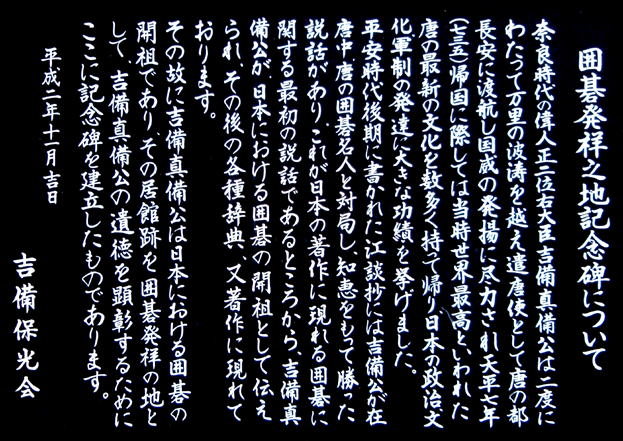 囲碁発祥之地記念碑について
奈良時代の偉人正二位右大臣吉備真備公は二度に
わたって万里の波涛を越え遣唐使として唐の都
長安に渡航し国威の発揚に尽力され天平七年
(七三五)帰国に際しては当時世界最高といわれた
唐の最新の文化を数多く持って帰り日本の政治文
化、軍制の発達に大きな功績を挙げました。
平安時代後期に書かれた江談抄には吉備公が在
唐中、唐の囲碁名人と対局し、知恵をもって勝った
説話があり、これが日本の著作に現れる囲碁に
関する最初の説話であるところから、吉備真
備公が、日本における囲碁の開祖として伝え
られ、その後の各種辞典、又著作に現れて
おります。
その故に吉備真備公は日本における囲碁の
開祖であり、その居館跡を囲碁発祥の地と
して、吉備真備公の遺徳を顕彰するために
ここに記念碑を建立したものであります。
平成二年十一月吉日
吉備保光会